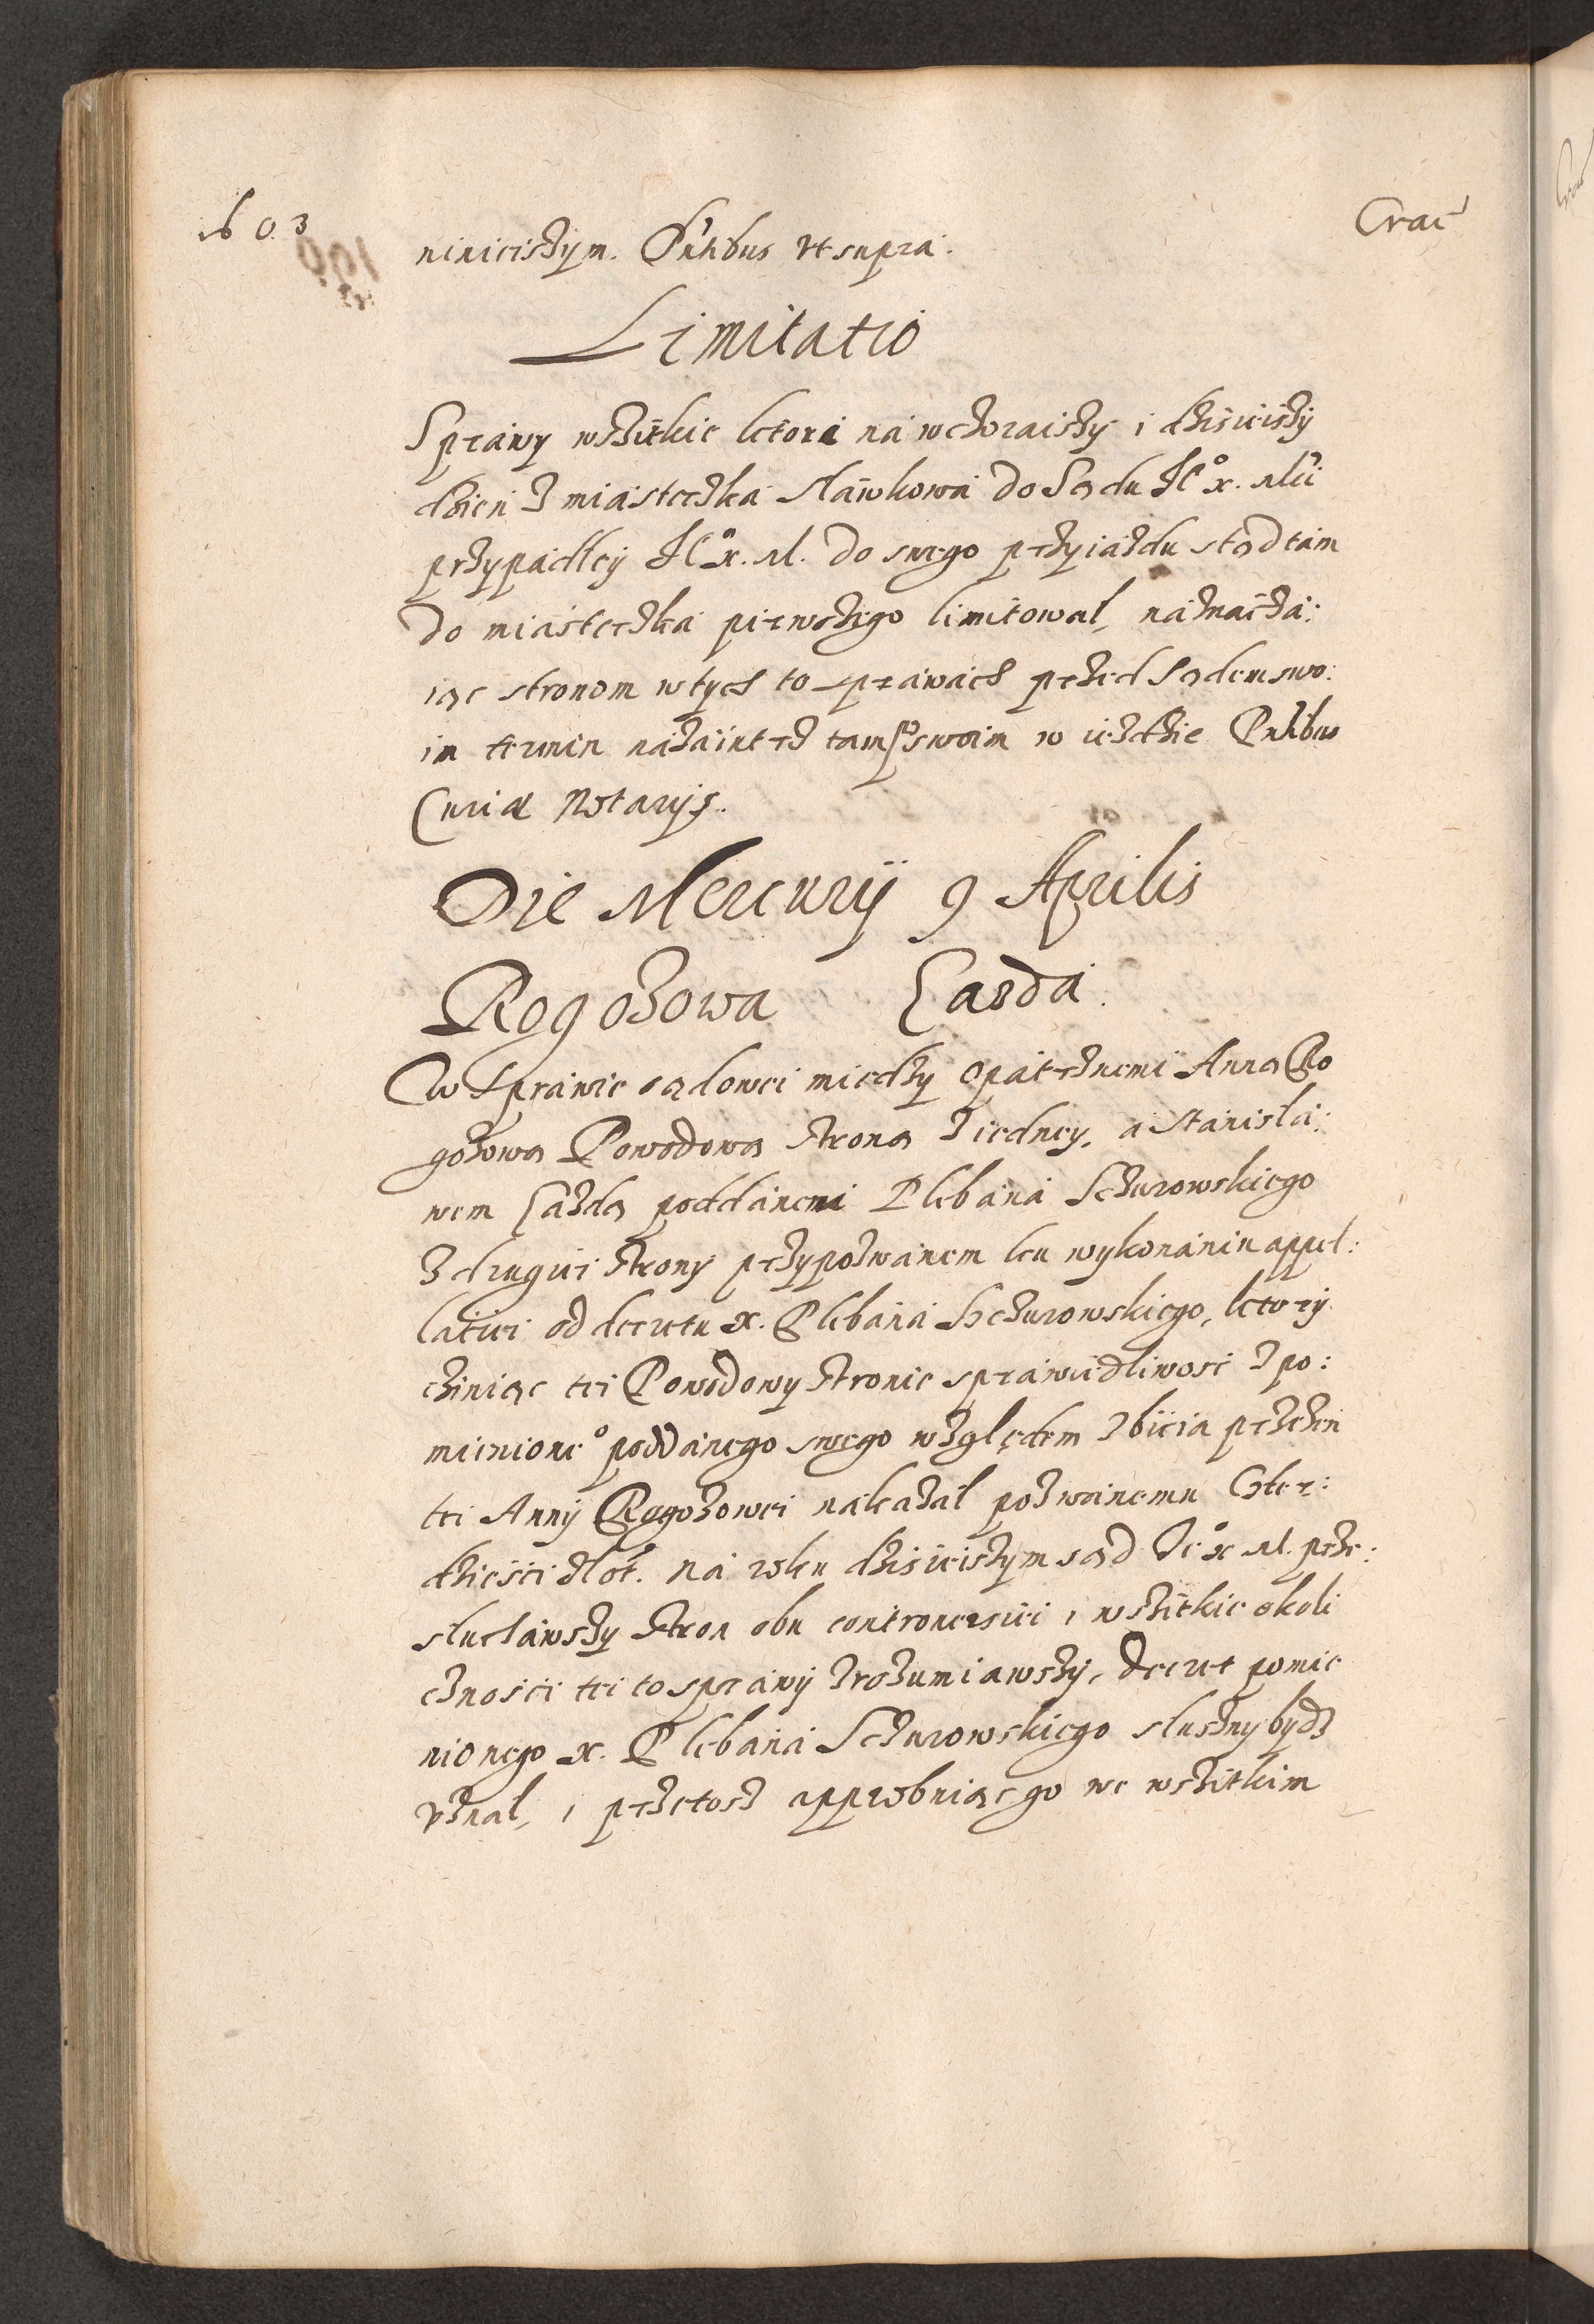 1603
Crac
ninieiszym. Pntibus vt supra.
Limitatio
Sprawy wszitkie ktore na wczoraiszy i dzisieiszy
dzien z miasteczka Sławkowa do Sądu Je° x. Mci
przypadłey Je° x. M. do swego przyiazdu ztąd tam
do miasteczka pierwszego limitował, naznacza:
iąc stronom w tych to sprawach przed Sądem swo:
im termin nazaiutrz tam po swoim w iezdzie Pntibus
Curiæ Notarijs.
Die Mercurij 9 Aprilis
Rogozowa Łazda.
W Sprawie sądowei między opatrznemi Anną Ro
gozową Powodową stroną z iedney, a Stanisła:
wem Łazdą poddanemi Plebana Sczurowskiego
z drugiei strony przypozwanem ku wykonaniu appel:
latiei od decretu x. Plebana Sczurowskiego, ktory
cziniąc tei Powodowy stronie sprawiedliwosc z po:
mienione° poddanego swego względem zbicia przezen
tei Anny Rogozowei nakazał pozwanemu Czter:
dziesci złot. na roku dzisieiszym sąd Je° x M. prze:
słuchawszy stron obu controuersiei i wszitkie okoli
cznosci tei to sprawy zrozumiawszy, decret pomie
nionego x. Plebana Sczurowskiego słuszny bydz
vznał, i przetosz approbuiąc go we wszitkim